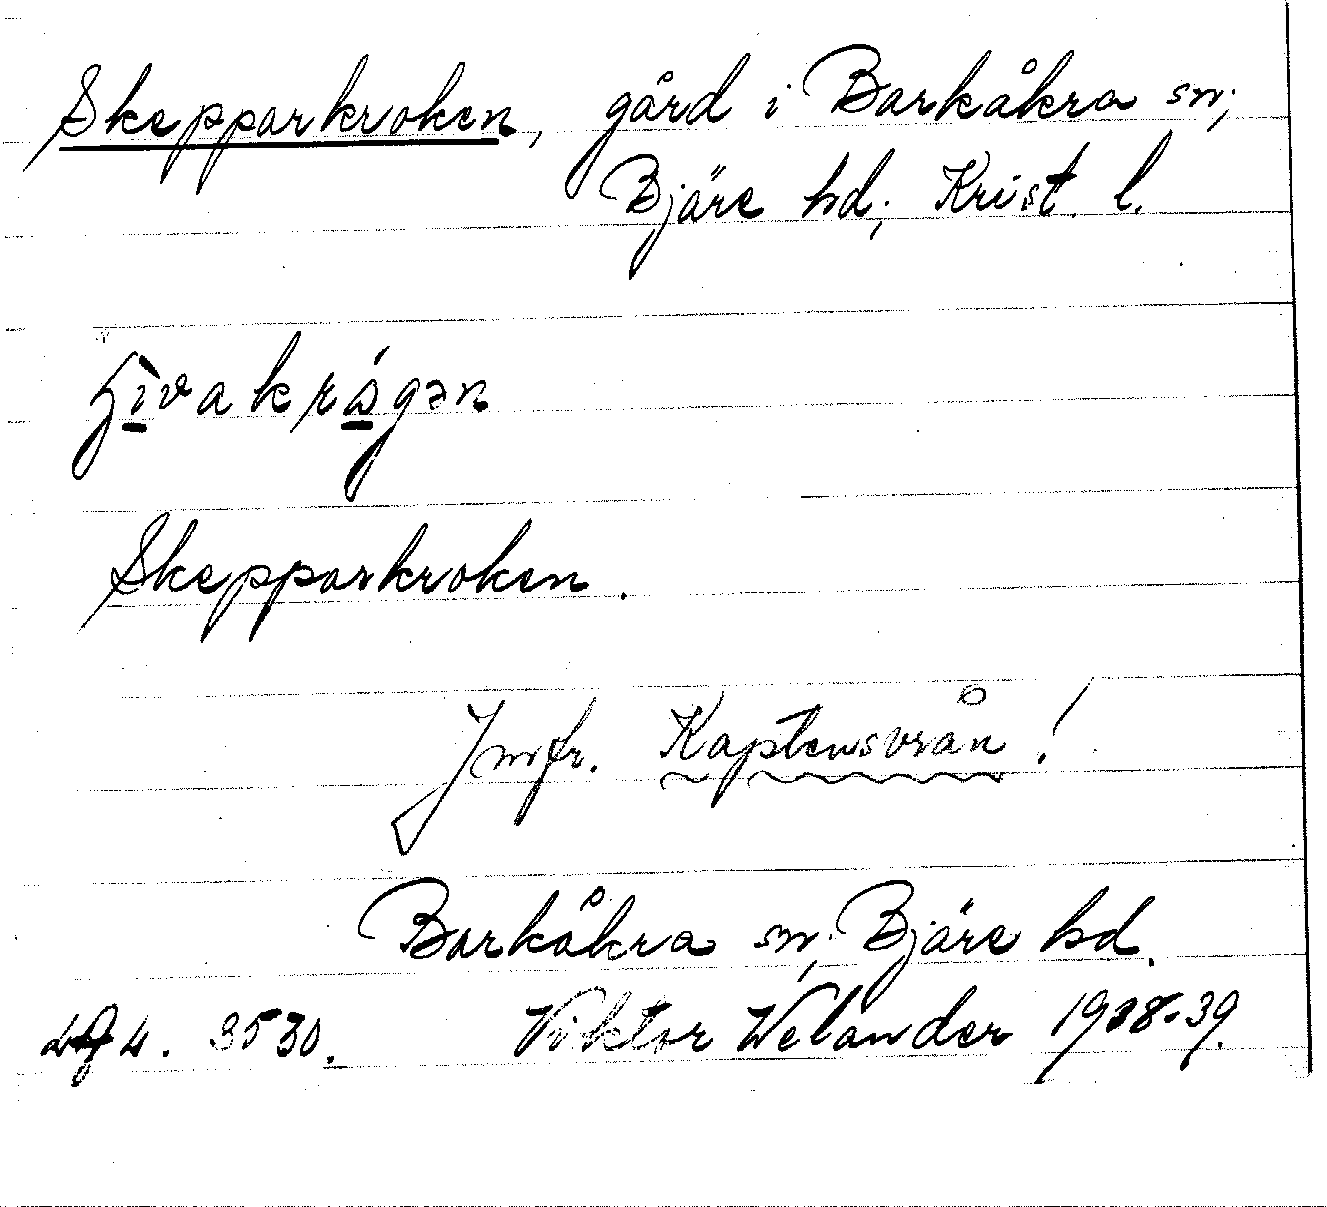 Skepparkroken, gård i Barkåkra sn;
Bjäre hd; Krist. l.
Skepparkroken.
Jmfr. Kaptensvrån!
Barkåkra sn, Bjäre hd.
4. 3530. Viktor Welander 1938-39.